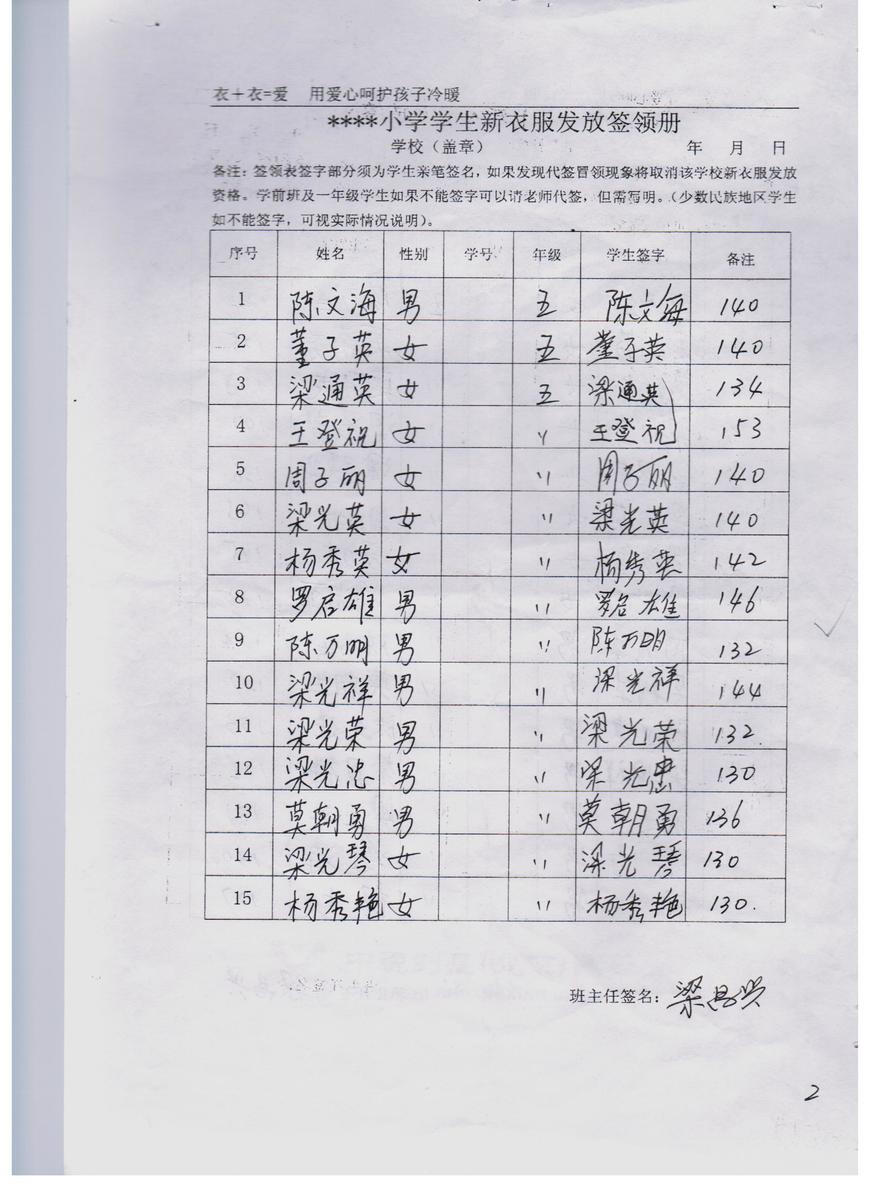 衣+衣=爱 用爱心呵护孩子冷暖
****小学学生新衣服发放签领册
学校(盖章) 年 月 日
备注:签领表签字部分须为学生亲笔签名,如果发现代签冒领现象将取消该学校新衣服发放
资格。学前班及一年级学生如果不能签字可以请老师代签,但需写明。(少数民族地区学生
如不能签字,可视实际情况说明)。
序号 姓名 性别 学号 年级 学生签字 备注
1 陈文海 男 五 陈文海 140
2 董子英 女 五 董子英 140
3 梁通英 女 五 梁通英 134
4 王登祝 女 〃 王登祝 153
5 周子丽 女 〃 周子丽 140
6 梁光英 女 〃 梁光英 140
7 杨秀英 女 〃 杨秀英 142
8 罗启雄 男 〃 罗启雄 146
9 陈万明 男 〃 陈万明 132
10 梁光祥 男 〃 梁光祥 144
11 梁光荣 男 〃 梁光荣 132
12 梁光忠 男 〃 梁光忠 130
13 莫朝勇 男 〃 莫朝勇 136
14 梁光琴 女 〃 梁光琴 130
15 杨秀艳 女 〃 杨秀艳 130.
班主任签名: 梁昌兴
2